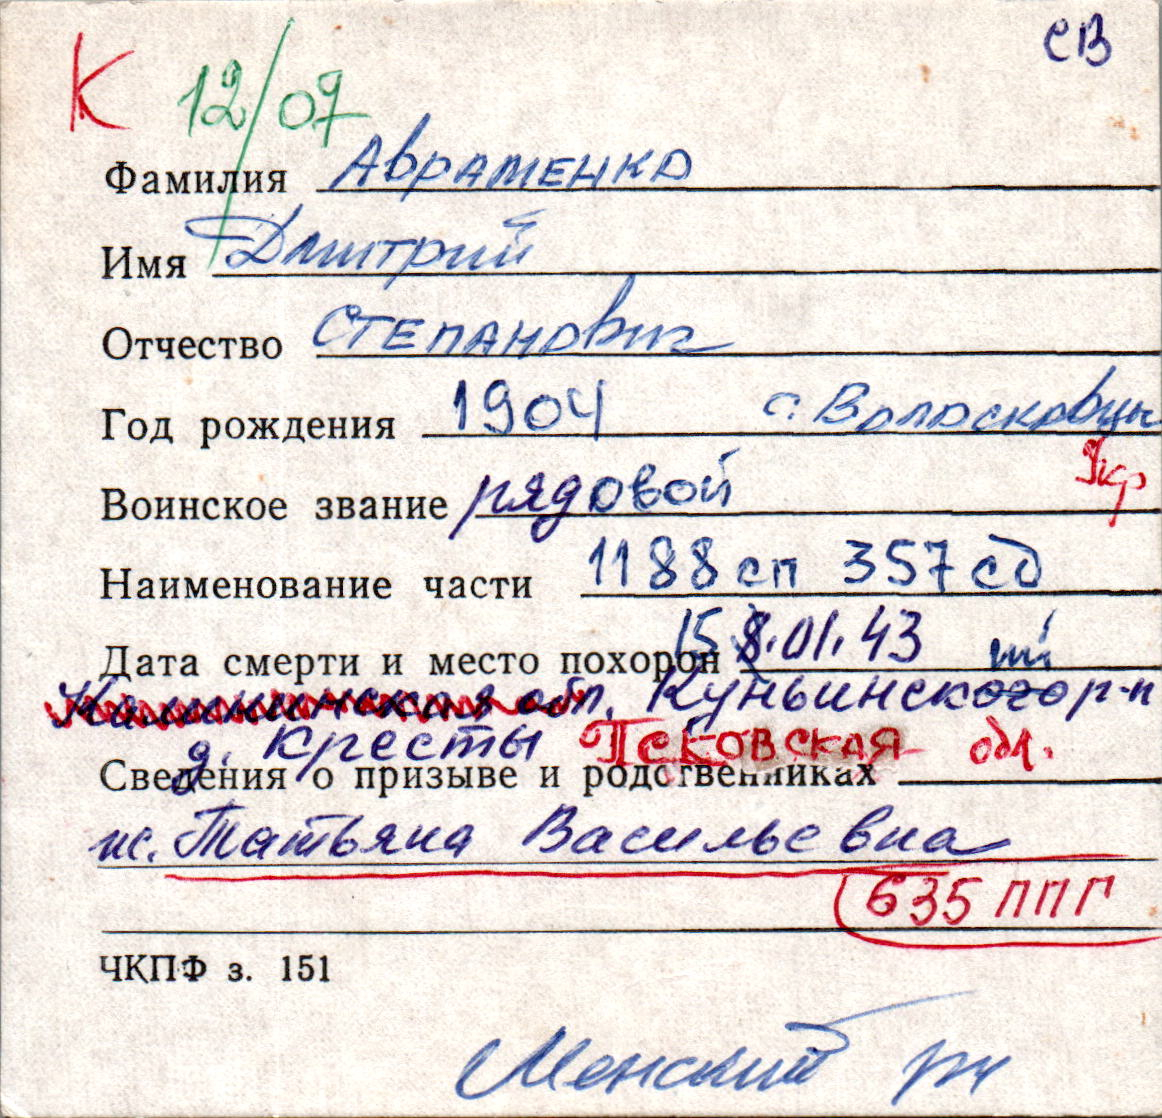 СВ
К 12/07
Фамилия Авраменко
Имя Дмитрий
Отчество Степанович
Год рождения 1904 с. Волосковцы
Укр
Воинское звание рядовой
Наименование части 1188 сп 357 сд
Дата смерти и место похорон 15.01.43
Калининская обл. Куньинского р-н
д. Кресты Псковская обл.
Сведения о призыве и родственниках
ж. Татьяна Васильевна
635 ППГ
ЧКПФ з. 151
Менский рн